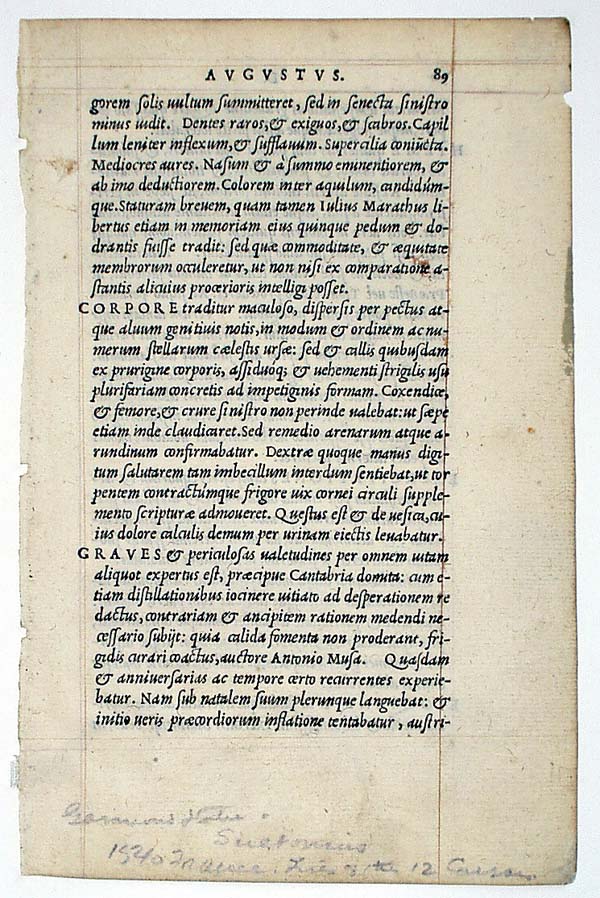 AVGVSTVS. 89
gorem solis uultum summitteret, sed in senecta sinistro
minus uidit. Dentes raros, & exiguos, & scabros. Capil
lum leniter inflexum, & sufflauum. Supercilia coniūcta.
Mediocres aures. Nasum & à summo eminentiorem, &
ab imo deductiorem. Colorem inter aquilum, candidúm-
que. Staturam breuem, quam tamen Iulius Marathus li-
bertus etiam in memoriam eius quinque pedum & do-
drantis fuisse tradit: sed quæ commoditate, & æquitate
membrorum occuleretur, ut non nisi ex comparatione a-
stantis alicuius procerioris intelligi posset.
CORPORE traditur maculoso, dispersis per pectus at-
que aluum genitiuis notis, in modum & ordinem ac nu-
merum stellarum cælestis ursæ: sed & callis quibusdam
ex prurigine corporis, assiduoq; & uehementi strigilis usu
plurifariam concretis ad impetiginis formam. Coxendice,
& femore, & crure sinistro non perinde ualebat: ut sæpe
etiam inde claudicaret. Sed remedio arenarum atque a-
rundinum confirmabatur. Dextræ quoque manus digi-
tum salutarem tam imbecillum interdum sentiebat, ut tor
pentem contractúmque frigore uix cornei circuli supple-
mento scripturæ admoueret. Questus est & de uesica, cu-
ius dolore calculis demum per urinam eiectis leuabatur.
GRAVES & periculosas ualetudines per omnem uitam
aliquot expertus est, præcipue Cantabria domita: cum e-
tiam distillationibus iocinere uitiato ad desperationem re
dactus, contrariam & ancipitem rationem medendi ne-
cessario subijt: quia calida fomenta non proderant, fri-
gidis curari coactus, auctore Antonio Musa. Quasdam
& anniuersarias ac tempore certo recurrentes experie-
batur. Nam sub natalem suum plerunque languebat: &
initio ueris præcordiorum inflatione tentabatur, austri-
Suetonius
1540 12